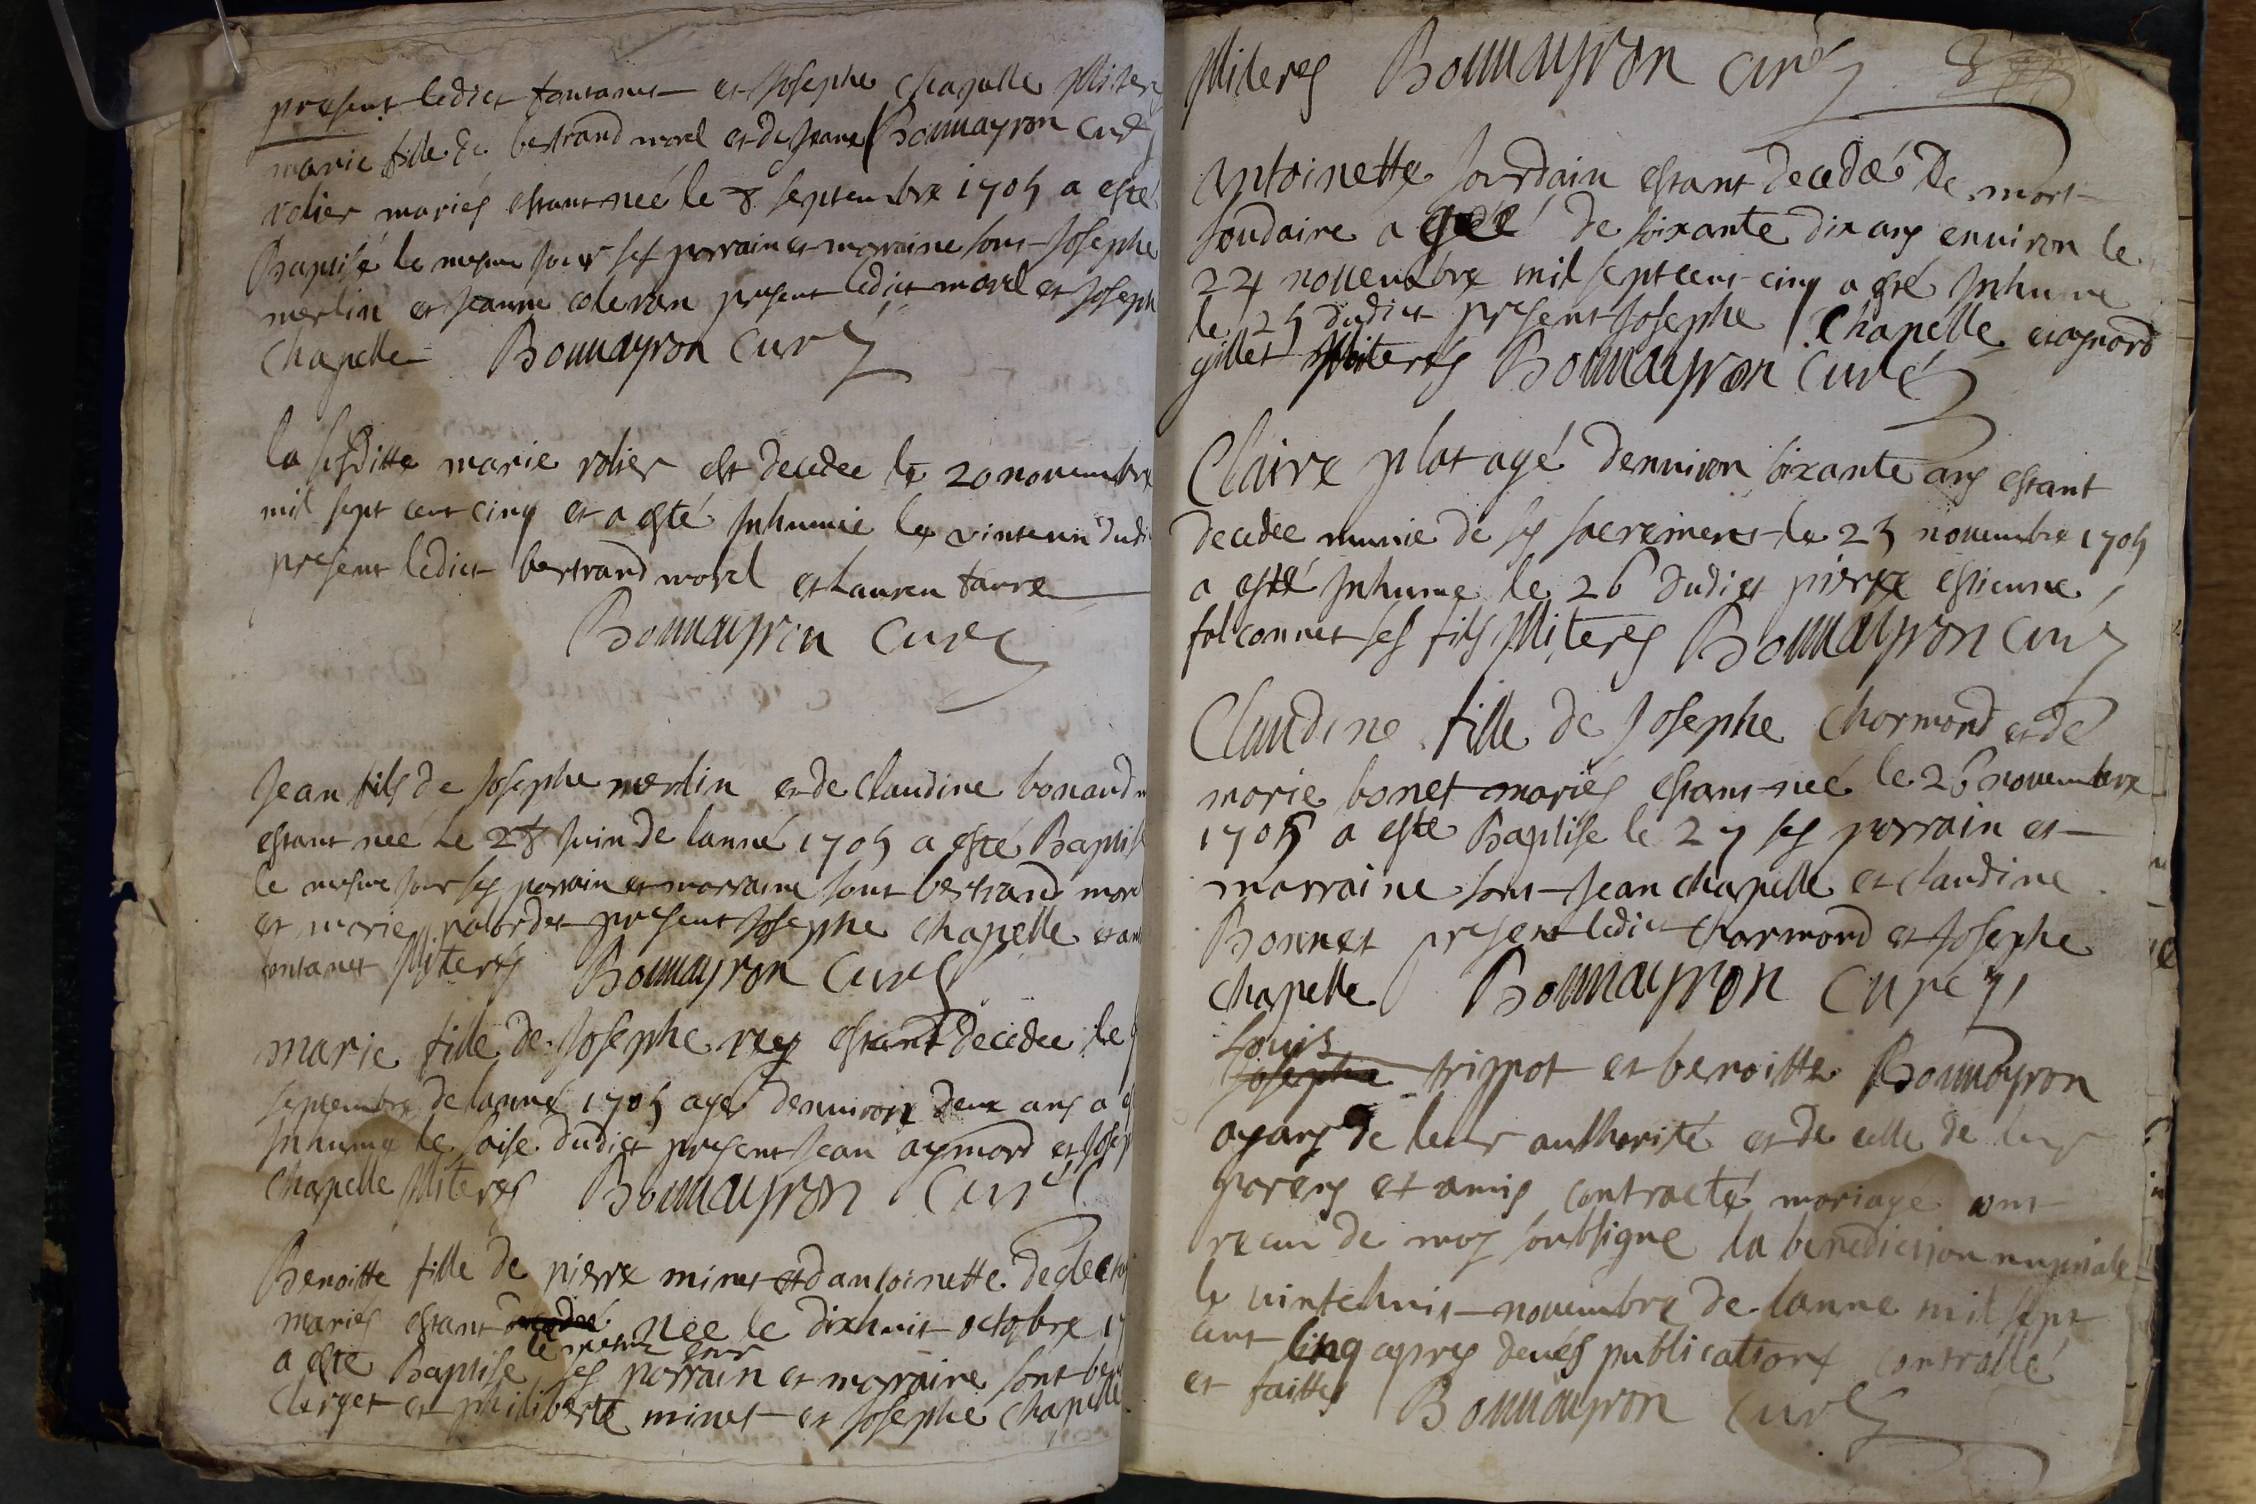 present ledict fontanet et Josephe chapelle Miterés
marie fille de bertrand morel et de Jeane Bonnayron Curé
rolier mariés estant neé le 8 septembre 1705 a esté
Baptisé le mesme Jour ses porrain et morraine sont Josephe
merlin et Jeanne coleron present ledict morel et Joseph
Chapelle Bonnayron Curé
la susditte marie rolier est decedee le 20 novembre
mil sept cent cinq et a esté Inhumée le vinteun dudi
present ledict bertrand morel et Lauren faure
Bonnayron Curé
Jean fils de Josephe merlin et de Claudine bonand
estant neé le 28 Juin de lanné 1705 a esté Baptis
le mesme Jour ses porrain et morraine sont bertrand mor
et marie palordet present Josephe Chapelle et an
ontanet Miterés Bonnayron Curé
marie fille de Josephe rey estant decedee le
septembre de lanné 1705 ageé denviron deux ans a
Inhume le soise dudict present Jean aymord et Josep
Chapelle Miterés Bonnayron Curé
Benoitte fille de pierre minet et dantoinette
mariés estant neé le dixhuit octobre 17
le mesme Jour
a esté Baptise ses porrain et morraine sont be
Clerget et philiberte minet et Josephe Chapelle
Miterés Bonnayron Curé
Antoinette Jourdain estant decedeé de mort
soudaine a geé de soixante dix ans environ le
24 novembre mil sept cent cinq a esté Inhume
le 25 dudict present Josephe Chapelle et aymord
gillet Miterés Bonnayron Curé
Claire plat agé denviron soixante ans estant
decedeé munie de ses sacremens le 25 novembre 1705
a esté Inhume le 26 dudict pierre estienne
falconnet ses fils Miterés Bonnayron Curé
Claudine fille de Josephe Chormond et de
morie bonet mariés estant neé le 26 novembre
1705 a esté Baptise le 27 ses porrain et
morraine sont Jean chapelle et claudine
Bonnet present ledict Chormond et Josephe
Chapelle Bonnayron Curé
Louis
Josephe trippot et benoitte Bonnayron
ayans de leur authorité et de celle de leurs
parens et amis contracté moriage ont
receu de moy soubsigne la benediction nupsiale
le vintehuit novembre de lanne mil sept
cent cinq apres deués publications controllé
et faittes Bonnayron Curé